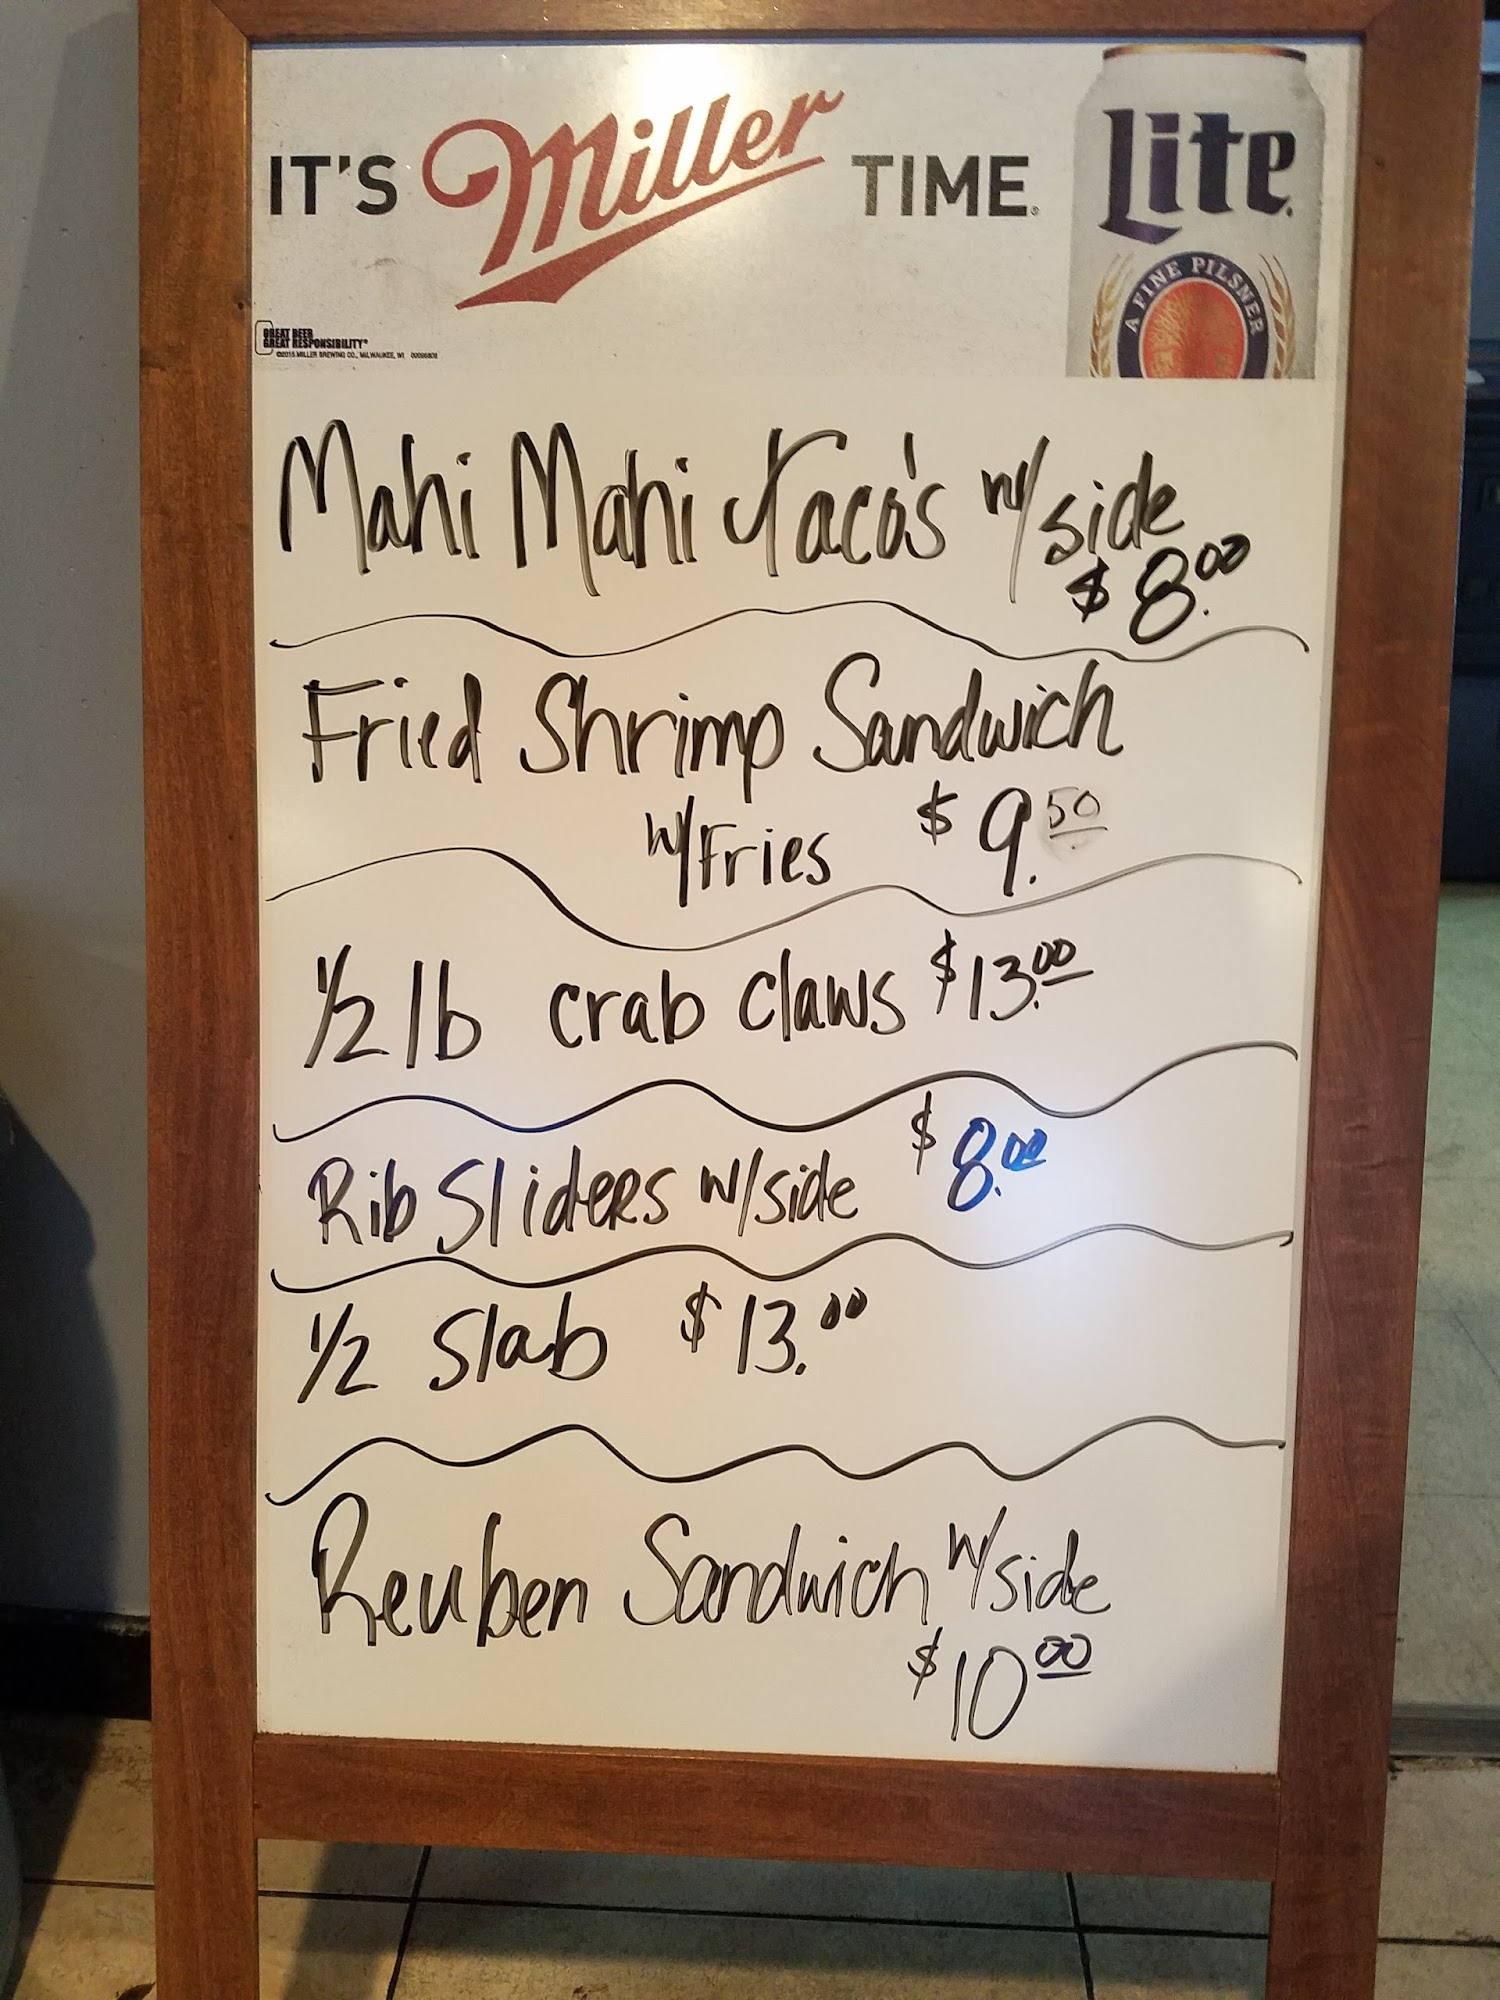 IT'S Miller TIME.
Lite
A FINE PILSNER
GREAT BEER
GREAT RESPONSIBILITY®
©2015 MILLER BREWING CO., MILWAUKEE, WI
Mahi Mahi Taco's w/side
$8.00
Fried Shrimp Sandwich
w/Fries $9.50
1/2 lb crab claws $13.00
Rib Sliders w/side $8.00
1/2 Slab $13.00
Reuben Sandwich w/side
$10.00